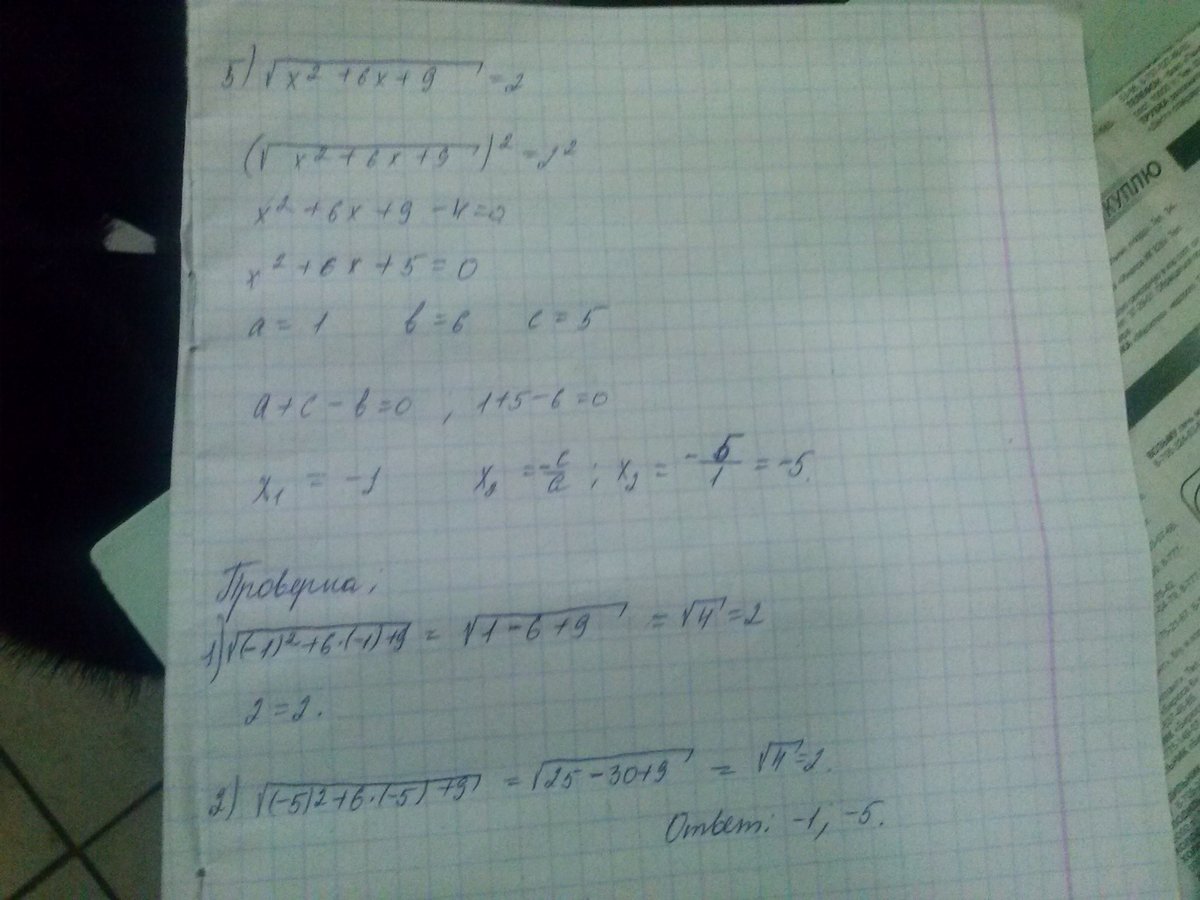 5) √(x² + 6x + 9) = 2
(√(x² + 6x + 9))² = 2²
x² + 6x + 9 - 4 = 0
x² + 6x + 5 = 0
a = 1 в = 6 c = 5
a + c - в = 0 ; 1 + 5 - 6 = 0
x₁ = -1 x₂ = -c/a ; x₂ = -5/1 = -5.
Проверка:
1) √((-1)² + 6·(-1) + 9) = √(1 - 6 + 9) = √4 = 2
2 = 2.
2) √((-5)2 + 6·(-5) + 9) = √(25 - 30 + 9) = √4 = 2.
Ответ: -1; -5.
КУПЛЮ